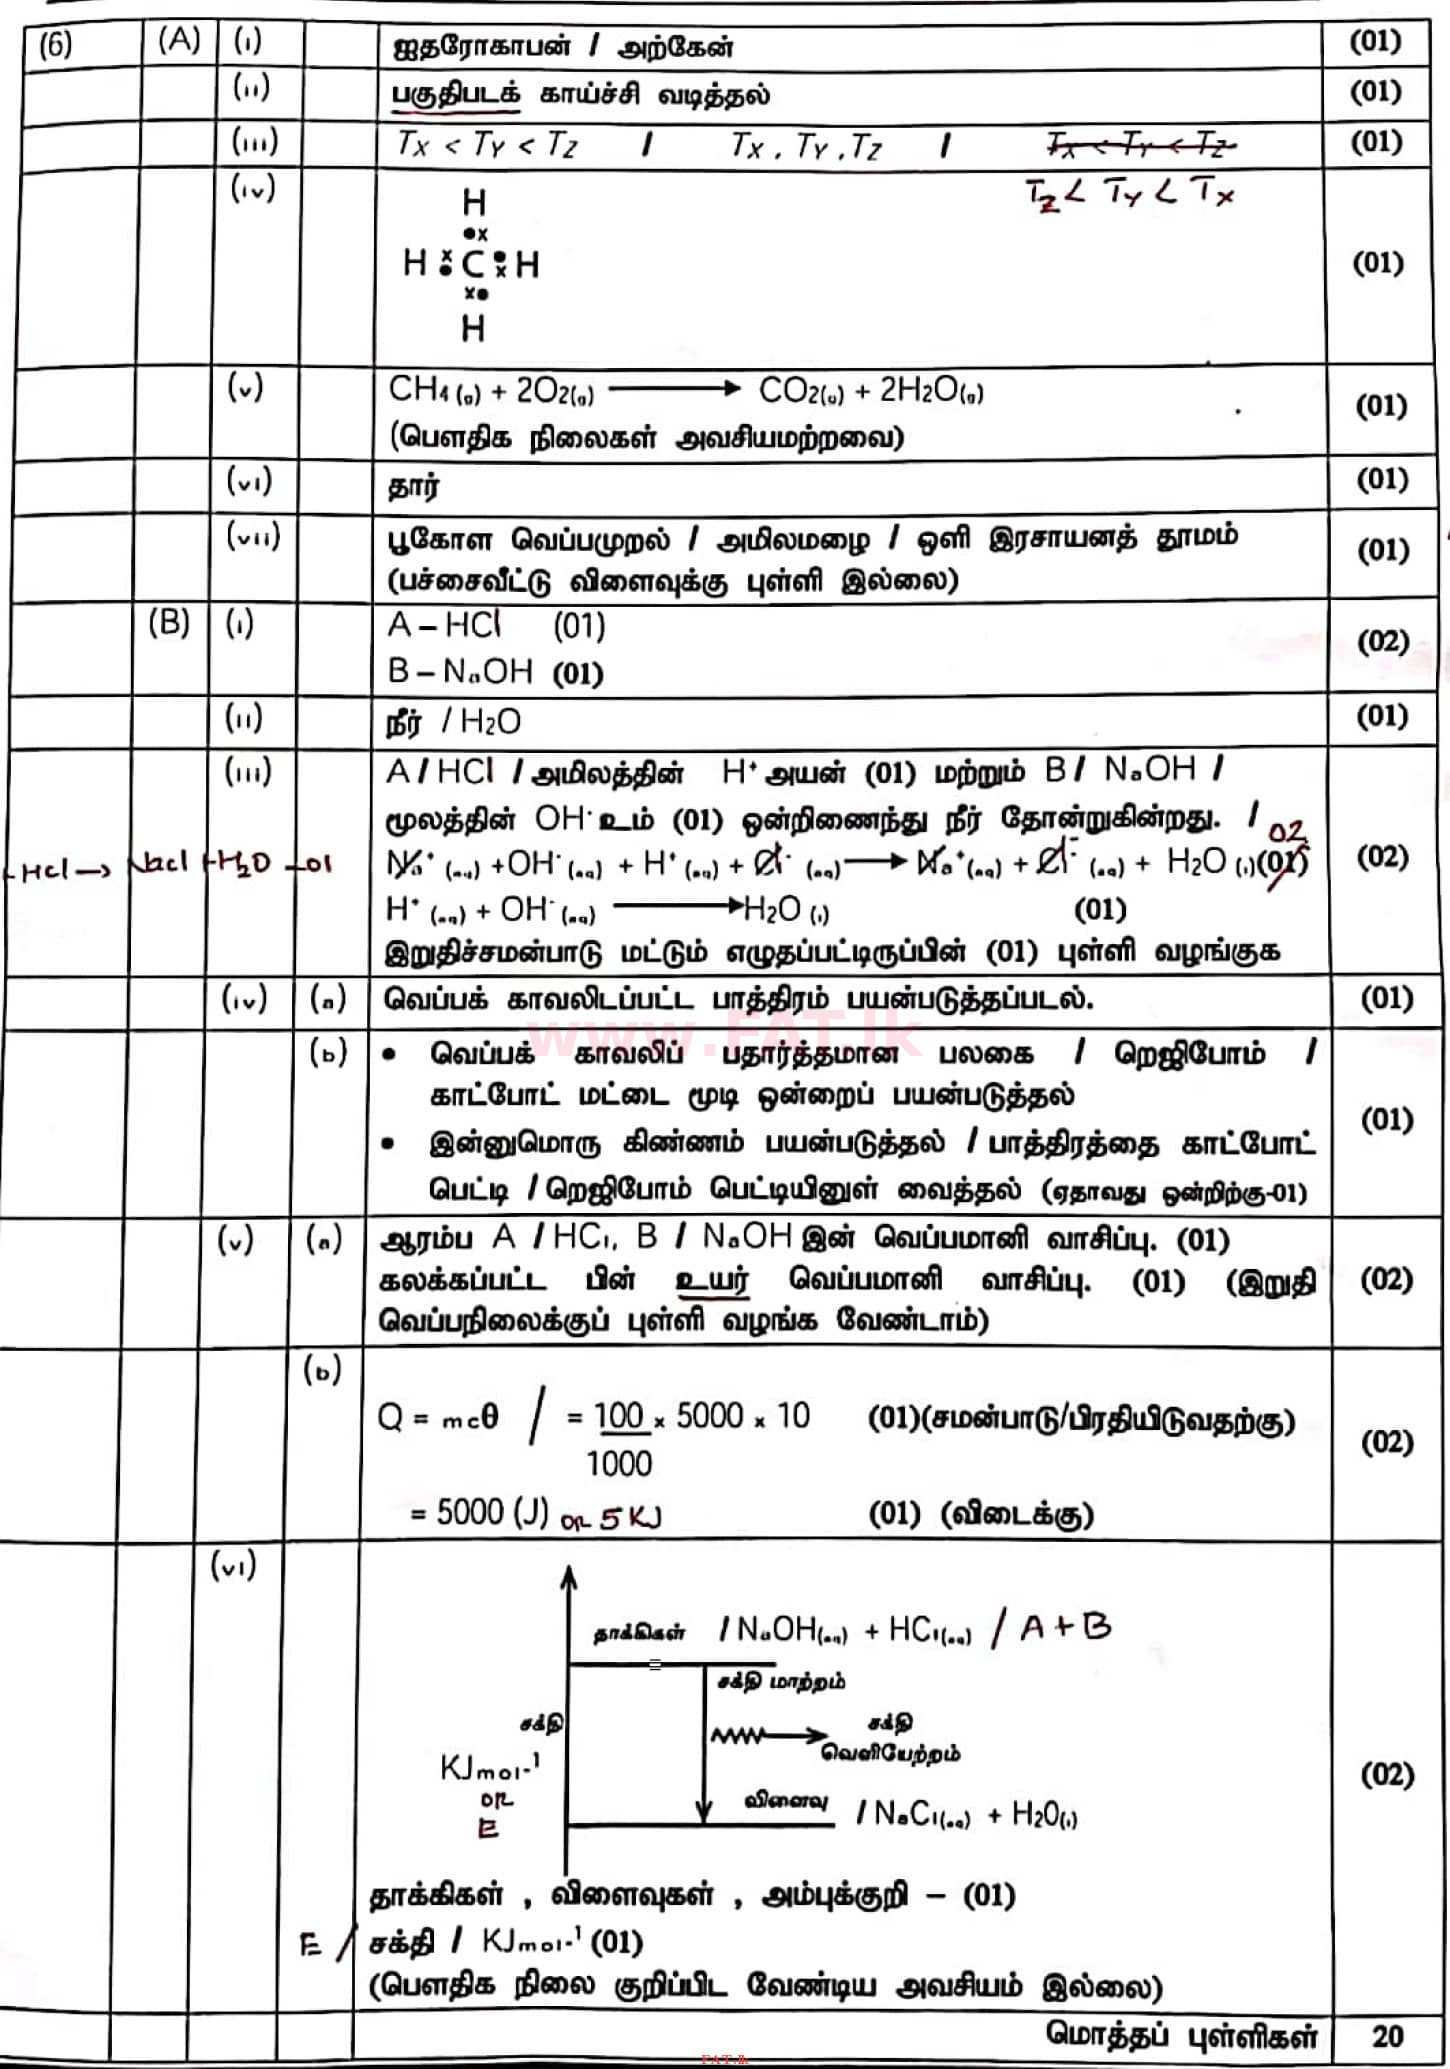 (6) (A) (i) ஐதரோகாபன் / அற்கேன் (01)
(ii) பகுதிபடக் காய்ச்சி வடித்தல் (01)
(iii) Tx < Ty < Tz / Tx , Ty , Tz / Tx < Ty < Tz (01)
Tz < Ty < Tx
(iv) H
H C H (01)
H
(v) CH4(g) + 2O2(g) → CO2(g) + 2H2O(g) (01)
(பௌதிக நிலைகள் அவசியமற்றவை)
(vi) தார் (01)
(vii) பூகோள வெப்பமுறல் / அமிலமழை / ஒளி இரசாயனத் தூமம் (01)
(பச்சைவீட்டு விளைவுக்கு புள்ளி இல்லை)
(B) (i) A – HCl (01) (02)
B – NaOH (01)
(ii) நீர் / H2O (01)
(iii) A / HCl / அமிலத்தின் H+ அயன் (01) மற்றும் B / NaOH /
மூலத்தின் OH- உம் (01) ஒன்றிணைந்து நீர் தோன்றுகின்றது. / 02
HCl → NaCl + H2O – 01 Na+(aq) + OH-(aq) + H+(aq) + Cl-(aq) → Na+(aq) + Cl-(aq) + H2O(l) (01) (02)
H+(aq) + OH-(aq) → H2O(l) (01)
இறுதிச்சமன்பாடு மட்டும் எழுதப்பட்டிருப்பின் (01) புள்ளி வழங்குக
(iv) (a) வெப்பக் காவலிடப்பட்ட பாத்திரம் பயன்படுத்தப்படல். (01)
www.FAT.lk
(b) • வெப்பக் காவலிப் பதார்த்தமான பலகை / றெஜிபோம் /
காட்போட் மட்டை மூடி ஒன்றைப் பயன்படுத்தல்
• இன்னுமொரு கிண்ணம் பயன்படுத்தல் / பாத்திரத்தை காட்போட் (01)
பெட்டி / றெஜிபோம் பெட்டியினுள் வைத்தல் (ஏதாவது ஒன்றிற்கு-01)
(v) (a) ஆரம்ப A / HCl, B / NaOH இன் வெப்பமானி வாசிப்பு. (01)
கலக்கப்பட்ட பின் உயர் வெப்பமானி வாசிப்பு. (01) (இறுதி (02)
வெப்பநிலைக்குப் புள்ளி வழங்க வேண்டாம்)
(b) Q = mcθ / = 100 × 5000 × 10 (01)(சமன்பாடு/பிரதியிடுவதற்கு) (02)
1000
= 5000 (J) or 5 KJ (01) (விடைக்கு)
(vi) தாக்கிகள் / NaOH(aq) + HCl(aq) / A + B
சக்தி மாற்றம்
சக்தி சக்தி
வெளியேற்றம்
KJmol-1 (02)
or
E
விளைவு / NaCl(aq) + H2O(l)
தாக்கிகள் , விளைவுகள் , அம்புக்குறி – (01)
E / சக்தி / KJmol-1 (01)
(பௌதிக நிலை குறிப்பிட வேண்டிய அவசியம் இல்லை)
மொத்தப் புள்ளிகள் 20
FAT.lk